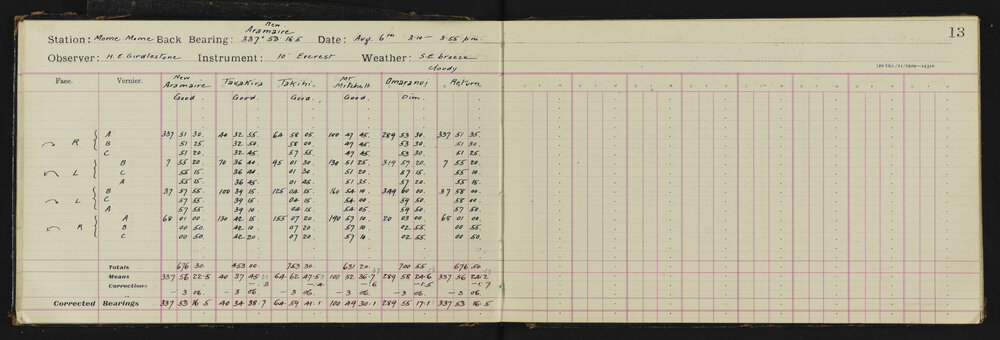 13
New
Aramaire
Station: Mome Mome Back Bearing: 337° 53 16.5 Date: Aug. 6th 3.10 - 3.55 p.m.
Observer: H.E. Girdlestone Instrument: 10" Everest Weather: S.E. breeze
cloudy
Face. Vernier. New Aramaire Takakira Takihi Mt Mitchell Omaranui Return
Good. Good. Good. Good. Dim.
R A 337 51 30. 40 32 55. 64 58 05. 100 47 45. 289 53 30. 337 51 35.
B 51 25 32 50. 58 00. 47 45. 53 30. 51 30.
C 51 20 32 45. 57 55. 47 45. 53 30. 51 25
L B 7 55 20. 70 36 40. 95 01 30. 130 51 25. 319 57 20. 7 55 20.
C 55 15. 36 40 01 30. 51 20 57 15. 55 10.
A 55 15. 36 45 01 45. 51 35. 57 20. 55 15.
L B 37 57 55. 100 39 15. 125 04 15. 160 54 10. 349 60 00. 37 58 00.
C 57 55 39 15 04 15. 54 00 59 50. 58 00
A 57 55 39 10 04 15 54 05. 59 50. 57 50.
R A 68 01 00. 130 42 15. 155 07 20. 190 57 10. 20 03 00. 68 01 00.
B 00 50. 42 10. 07 20. 57 10. 02 55. 00 55
C 00 50. 42 20 07 20. 57 10 02 55. 00 50.
Totals 676 30. 453 00. 753 30. 631 20. 700 55 676 50.
Means 337 56 22.5 40 37 45 64 62 47.5 100 52 36.7 289 58 24.6 337 56 24.2
Corrections - .3 - .4 - .6 - 1.5 - 1.7
- 3 06. - 3 06. - 3 06. - 3 06. - 3 06. - 3 06.
Corrected Bearings 337 53 16.5 40 34 38.7 64 59 41.1 100 49 30.1 289 55 17.1 337 53 16.5